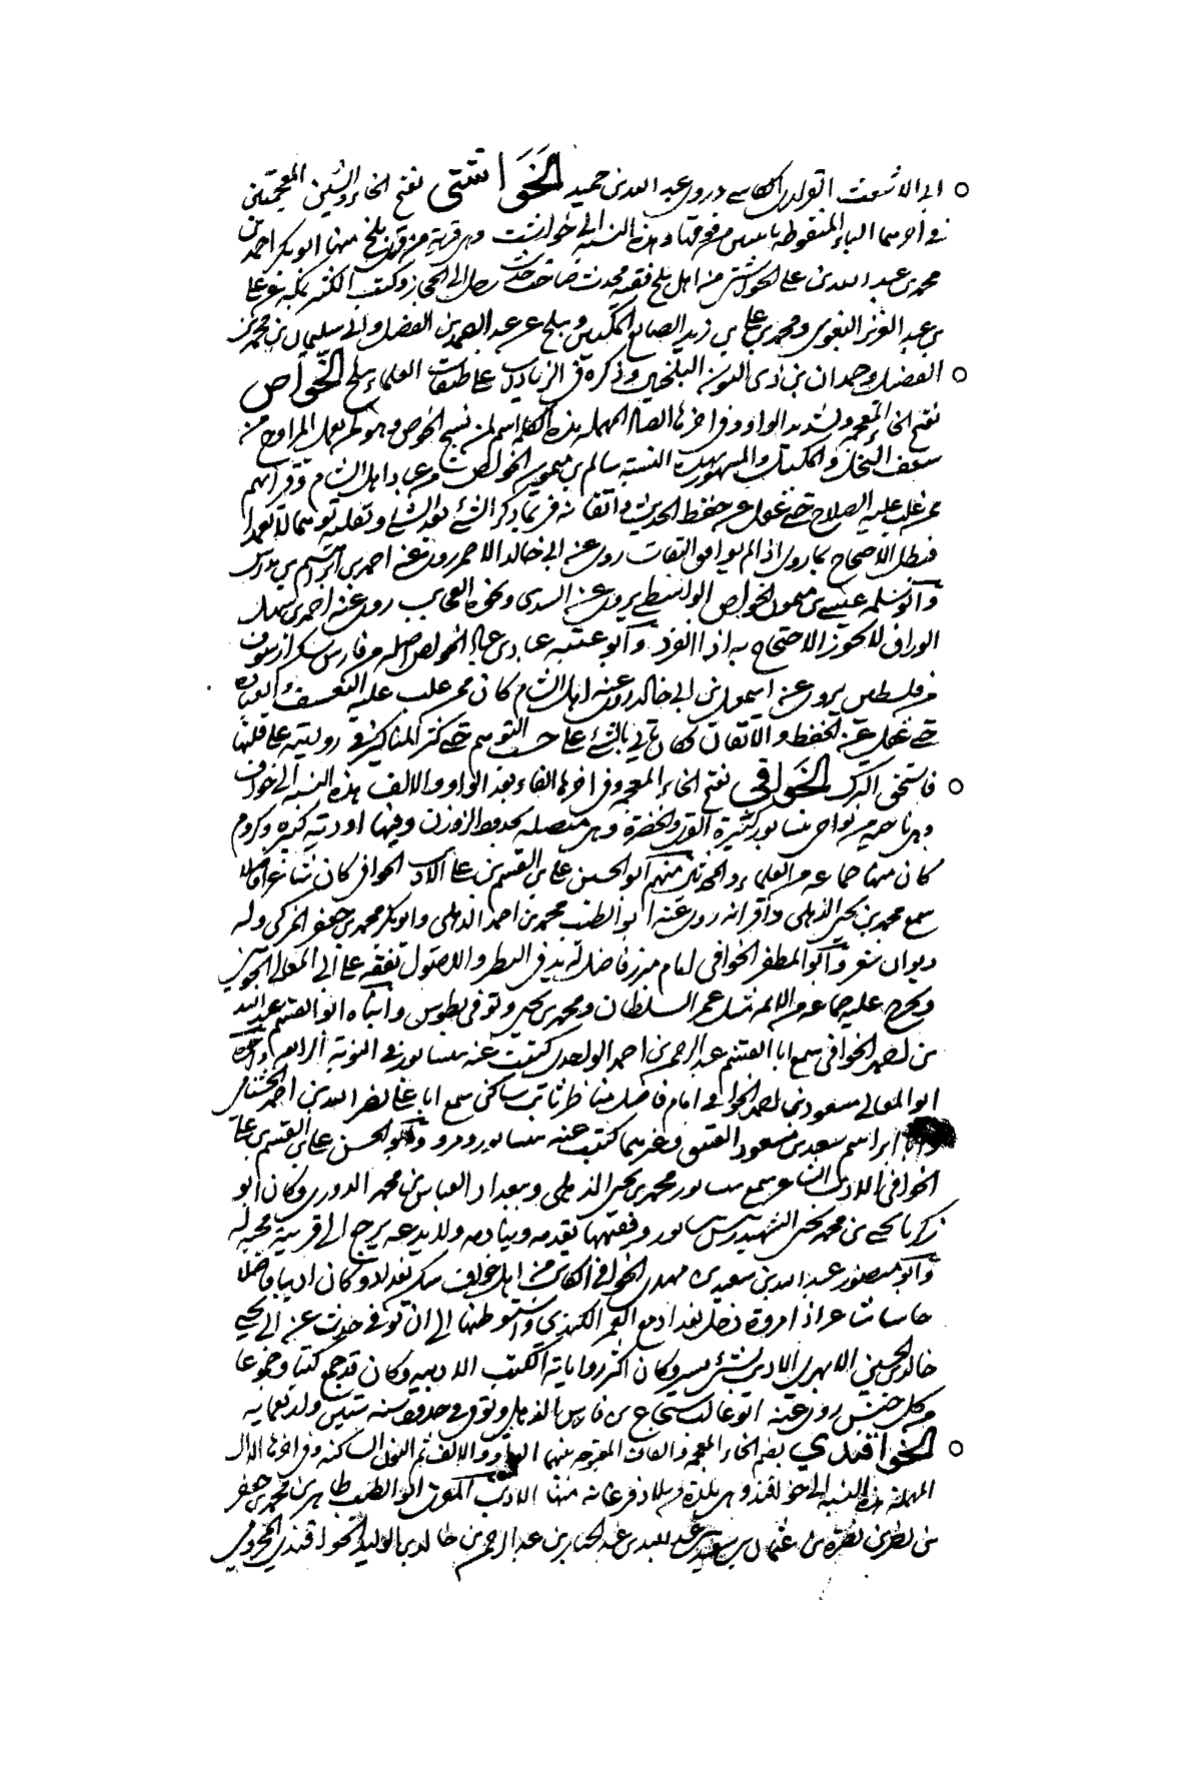 ابى الاشعث القولدى الكاسى وروى عبد الله بن حميد الخَوَاشتى بفتح الخاء والشين المعجمتين
وفى آخرهما التاء المنقوطة باثنتين من فوقها وهذه النسبة الى خواشت وهى قرية من قرى بلخ منها ابو بكر احمد بن
محمد بن عبد الله بن على الخواشتى من اهل بلخ فقيه محدث رحل الى الحجاز وكتب الكثير بمكة عن على
بن عبد العزيز البغوى ومحمد بن على بن زيد الصائغ المكيين وببلخ عن عبد الصمد بن الفضل وابى سليمان بن محمد بن
الفضل وحمدان بن ذى النون البلخيين وذكره فى طبقات العلماء ببلخ الخوّاص
بفتح الخاء المعجمة وتشديد الواو وفى آخرها الصاد المهملة هذه الكلمة اسم لمن ينسج الخوص وهو الذى يعمل المراوح من
سعف النخل والمكتل والمشهور بهذه النسبة سالم بن ميمون الخواص من عباد اهل الشام وقرائهم
ممن غلب عليه الصلاح حتى غفل عن حفظ الحديث واتقانه فربما ذكر الشئ بعد الشئ وتقلبه توهما لا تعمدا
فبطل الاحتجاج بما روى اذا لم يوافق الثقات روى عن ابى خالد الاحمر روى عنه احمد بن ابراهيم بن
وابو سلمة عيسى بن ميمون الخواص الواسطى يروى عن السدى وغيره العجايب روى عنه احمد بن سهل
الوراق لا يجوز الاحتجاج به اذا انفرد وابو عتبة عباد بن عباد الخواص اصله من فارس سكن ارسوف
من فلسطين يروى عن اسمعيل بن ابى خالد روى عنه اهل الشام كان ممن غلب عليه التقشف والعبادة
حتى غفل عن الحفظ والاتقان فكان ياتى بالشئ على حسب التوهم حتى كثر المناكير فى روايته على قلتها
فاستحق الترك الخَوَافى بفتح الخاء المعجمة وفى آخرها الفاء بعد الواو والالف هذه النسبة الى خواف
وهى ناحية من نواحى نيسابور كثيرة القرى والخضرة وهى متصلة بحدود الزوزن وفيها اودية كثيرة وكروم
كان منها جماعة من العلماء والمحدثين منهم ابو الحسن على بن القسم بن على الاديب الخوافى كان شاعرا فاضلا
سمع محمد بن يحيى الذهلى واقرانه روى عنه ابو الطيب محمد بن احمد الذهلى وابو بكر محمد بن جعفر المزكى وله
ديوان شعر وابو المظفر الخوافى امام مبرز فاضل له يد فى النظر والاصول تفقه على ابى المعالى الجوينى
وتخرج عليه جماعة من الائمة مثل عمر السلطان ومحمد بن يحيى وتوفى بطوس وابناه ابو القسم عبد الله
بن احمد الخوافى سمع ابا القسم عبد الرحمن بن احمد الواحدى كتبت عنه بنيسابور فى النوبة الرابعة واخوه
ابو المعالى مسعود بن احمد الخوافى امام فاضل مناظر ثابت ساكن سمع ابا على نصر الله بن احمد الخشنامى
ابراهيم سعد بن مسعود العتبى وغيرهما كتبت عنه بنيسابور ومرو وابو الحسن على بن القسم بن على
الخوافى الاديب الشاعر سمع بنيسابور محمد بن يحيى الذهلى وببغداد العباس بن محمد الدورى وكان ابو
زكريا يحيى بن محمد بن يحيى الشهيد رئيس نيسابور وفقيهها يقدمه وينادمه ولا يدعه يرجع الى قريته محبة له
وابو منصور عبد الله بن سعيد بن مهدى الخوافى الكاتب من اهل خواف سكن بغداد وكان اديبا فاضلا
حاسبا شاعرا ذا مروة دخل بغداد مع العميد الكندرى واستوطنها الى ان توفى حدث عن ابى يحيى
خالد بن الحسين الابهرى الاديب بشئ يسير وكان اكثر رواياته الكتب الادبية وكان قد جمع كتبا وجموعا
من كل جنس روى عنه ابو غالب شجاع بن فارس الذهلى وتوفى فى حدود سنة ثمانين واربعمائة
الخواقندى بضم الخاء المعجمة والقاف المفتوحة بينهما الواو والالف ثم النون الساكنة وفى آخرها الدال
المهملة هذه النسبة الى خواقند وهى بلدة من بلاد فرغانة منها الاديب المقرئ ابو الطيب طاهر بن محمد بن جعفر
بن نصر بن نصر بن عثمان بن سعيد بن عبد الله بن عبد الجبار بن عبد الرحمن بن خالد بن الوليد الخواقندى المخزومى